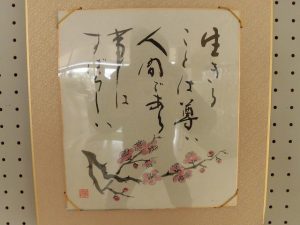 生きる
ことは尊い
人間である
事は
すばらしい